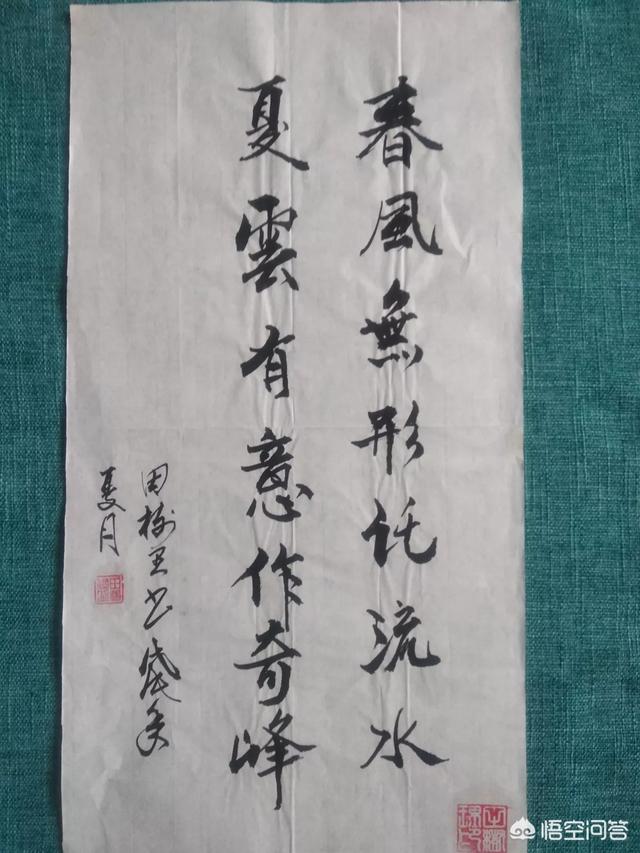 春風無形託流水
夏雲有意作奇峰
田树书
夏月
悟空问答